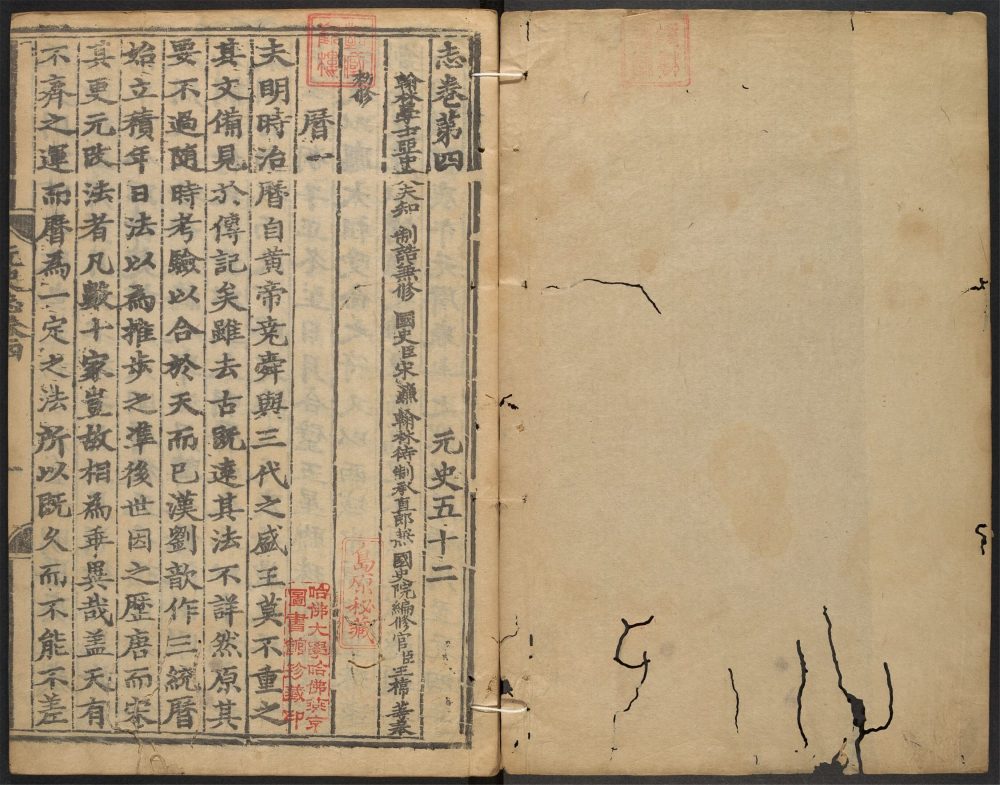 志卷第四　元史五十二
翰林學士亞中大夫知制誥兼修國史臣宋濂翰林待制承直郎兼國史院編修官臣王禕等奉
勑修
曆一
夫明時治曆自黃帝堯舜與三代之盛王莫不重之
其文備見於傳記矣雖去古既遠其法不詳然原其
要不過隨時考驗以合於天而已漢劉歆作三統曆
始立積年日法以為推步之準後世因之歷唐而宋
其更元改法者凡數十家豈故相為乖異哉盖天有
不齊之運而曆為一定之法所以既久而不能不差
島原秘藏
哈佛大學哈佛燕京
圖書館珍藏印